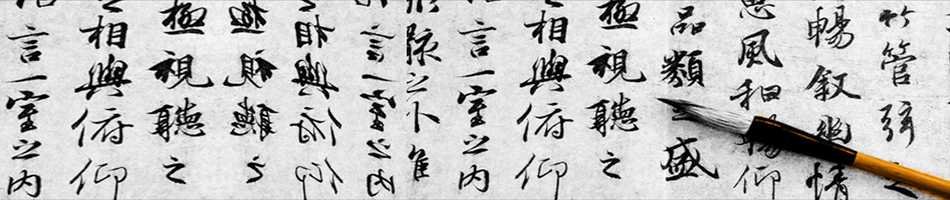 竹管弦之
暢叙幽情
惠風和暢仰
品類之盛
極視聽之
相與俯仰
言一室之内
骸之外雖
言一室之内
相與俯仰
極視聽之
極視聽之
相與俯仰
言一室之内